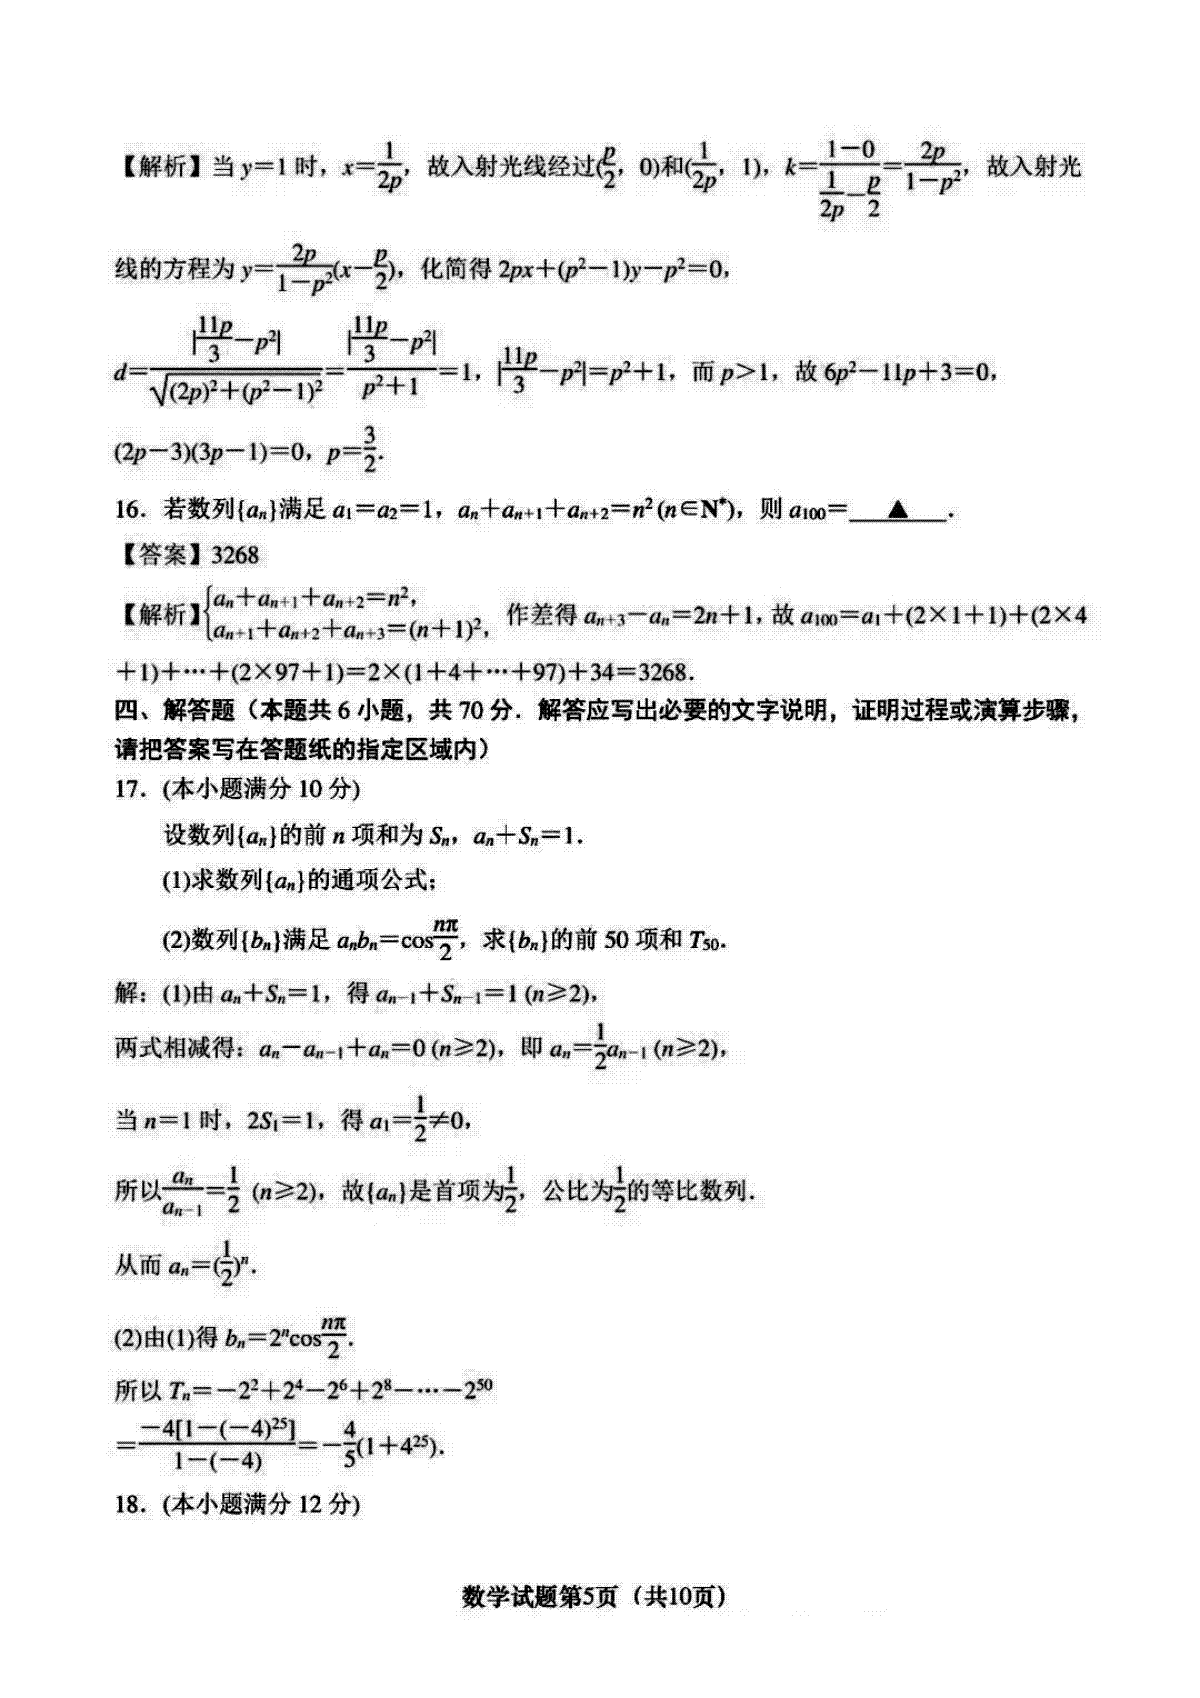 【解析】当 y＝1 时，x＝\frac{1}{2p}，故入射光线经过(\frac{p}{2}，0)和(\frac{1}{2p}，1)，k＝\frac{1－0}{\frac{1}{2p}－\frac{p}{2}}＝\frac{2p}{1－p²}，故入射光
线的方程为 y＝\frac{2p}{1－p²}(x－\frac{p}{2})，化简得 2px＋(p²－1)y－p²＝0，
d＝\frac{|\frac{11p}{3}－p²|}{\sqrt{(2p)²＋(p²－1)²}}＝\frac{|\frac{11p}{3}－p²|}{p²＋1}＝1，|\frac{11p}{3}－p²|＝p²＋1，而 p＞1，故 6p²－11p＋3＝0，
(2p－3)(3p－1)＝0，p＝\frac{3}{2}.
16．若数列{a_n}满足 a_1＝a_2＝1，a_n＋a_{n+1}＋a_{n+2}＝n² (n∈N*)，则 a_{100}＝ ▲ ．
【答案】3268
【解析】{a_n＋a_{n+1}＋a_{n+2}＝n²，
a_{n+1}＋a_{n+2}＋a_{n+3}＝(n＋1)²， 作差得 a_{n+3}－a_n＝2n＋1，故 a_{100}＝a_1＋(2×1＋1)＋(2×4
＋1)＋…＋(2×97＋1)＝2×(1＋4＋…＋97)＋34＝3268．
四、解答题（本题共 6 小题，共 70 分．解答应写出必要的文字说明，证明过程或演算步骤，
请把答案写在答题纸的指定区域内）
17．(本小题满分 10 分)
设数列{a_n}的前 n 项和为 S_n，a_n＋S_n＝1．
(1)求数列{a_n}的通项公式；
(2)数列{b_n}满足 a_nb_n＝cos\frac{nπ}{2}，求{b_n}的前 50 项和 T_{50}．
解：(1)由 a_n＋S_n＝1，得 a_{n-1}＋S_{n-1}＝1 (n≥2)，
两式相减得：a_n－a_{n-1}＋a_n＝0 (n≥2)，即 a_n＝\frac{1}{2}a_{n-1} (n≥2)，
当 n＝1 时，2S_1＝1，得 a_1＝\frac{1}{2}≠0，
所以\frac{a_n}{a_{n-1}}＝\frac{1}{2} (n≥2)，故{a_n}是首项为\frac{1}{2}，公比为\frac{1}{2}的等比数列．
从而 a_n＝(\frac{1}{2})^n．
(2)由(1)得 b_n＝2^ncos\frac{nπ}{2}．
所以 T_n＝－2²＋2⁴－2⁶＋2⁸－…－2^{50}
＝\frac{－4[1－(－4)^{25}]}{1－(－4)}＝－\frac{4}{5}(1＋4^{25})．
18．(本小题满分 12 分)
数学试题第5页（共10页）